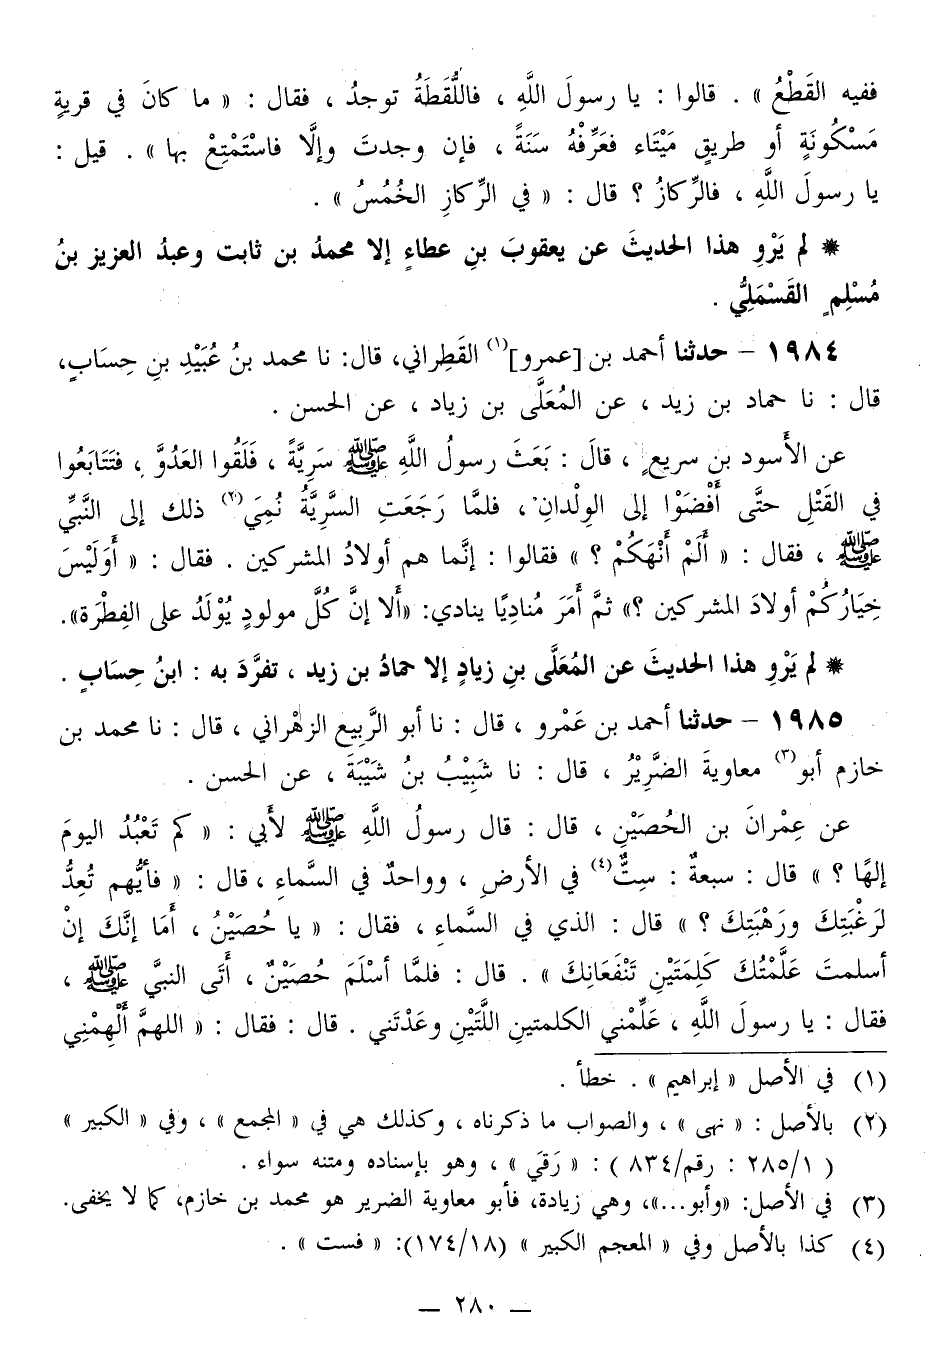 ففيه القَطْعُ » . قالوا : يا رسولَ اللَّهِ ، فاللُّقَطَةُ توجدُ ، فقال : « ما كانَ في قريةٍ
مَسْكُونَةٍ أو طريقٍ مَيْتَاء فعَرِّفْهُ سَنَةً ، فإن وجدتَ وإلَّا فاسْتَمْتِعْ بها » . قيل :
يا رسولَ اللَّهِ ، فالرِّكازُ ؟ قال : « في الرِّكازِ الخُمُسُ » .
* لم يَرْوِ هذا الحديثَ عن يعقوبَ بنِ عطاءٍ إلا محمدُ بن ثابت وعبدُ العزيز بنُ
مُسْلِمٍ القَسْمَلِيُّ .
١٩٨٤ – حدثنا أحمد بن [عمرو](١) القَطِراني، قال: نا محمد بنُ عُبَيْدِ بنِ حِسَابٍ،
قال : نا حماد بن زيد ، عن المُعَلَّى بن زياد ، عن الحسن .
عن الأَسود بن سريعٍ ، قالَ : بَعَثَ رسولُ اللَّهِ ﷺ سَرِيَّةً ، فَلَقُوا العَدُوَّ ، فتَتَابَعُوا
في القَتْلِ حتَّى أَفْضَوْا إلى الوِلْدانِ ، فلمَّا رَجَعَتِ السَّرِيَّةُ نُمِيَ(٢) ذلك إلى النَّبِيِّ
ﷺ ، فقال : « أَلَمْ أَنْهَكُمْ ؟ » فقالوا : إنَّما هم أولادُ المشركين . فقال : « أَوَلَيْسَ
خِيَارُكُمْ أولادَ المشركين ؟» ثمَّ أمَرَ مُنادِيًا ينادي: «ألا إنَّ كُلَّ مولودٍ يُوْلَدُ على الفِطْرة».
* لم يَرْوِ هذا الحديثَ عن المُعَلَّى بنِ زيادٍ إلا حمادُ بن زيد ، تفرَّدَ به : ابنُ حِسَابٍ .
١٩٨٥ – حدثنا أحمد بن عَمْرو ، قال : نا أبو الرَّبيع الزهْراني ، قال : نا محمد بن
خازم أبو(٣) معاويةَ الضَّرِيْرُ ، قال : نا شَبِيْبُ بنُ شَيْبَةَ ، عن الحسن .
عن عِمْرانَ بن الحُصَيْنِ ، قال : قال رسولُ اللَّهِ ﷺ لأَبي : « كم تَعْبُدُ اليومَ
إلهًا ؟ » قال : سبعةٌ : سِتٌّ(٤) في الأرضِ ، وواحدٌ في السَّماءِ ، قال : « فأيُّهم تُعِدُّ
لرَغْبَتِكَ ورَهْبَتِكَ ؟ » قال : الذي في السَّماءِ ، فقال : « يا حُصَيْنُ ، أَمَا إنَّكَ إنْ
أسلمتَ عَلَّمْتُكَ كَلِمَتَيْنِ تَنْفَعَانِكَ » . قال : فلمَّا أسْلَمَ حُصَيْنٌ ، أَتَى النبيَّ ﷺ ،
فقال : يا رسولَ اللَّهِ ، عَلِّمْني الكلمتينِ اللَّتَيْنِ وعَدْتَني . قال : فقال : « اللهمَّ أَلْهِمْنِي
(١) في الأصل « إبراهيم » . خطأ .
(٢) بالأصل : « نهى » ، والصواب ما ذكرناه ، وكذلك هي في « المجمع » ، وفي « الكبير »
( ٢٨٥/١ : رقم/٨٣٤ ) : « رَقيَ » ، وهو بإسناده ومتنه سواء .
(٣) في الأصل: «وأبو...»، وهي زيادة، فأبو معاوية الضرير هو محمد بن خازم، كما لا يخفى.
(٤) كذا بالأصل وفي « المعجم الكبير » (١٧٤/١٨): « فست » .
— ٢٨٠ —